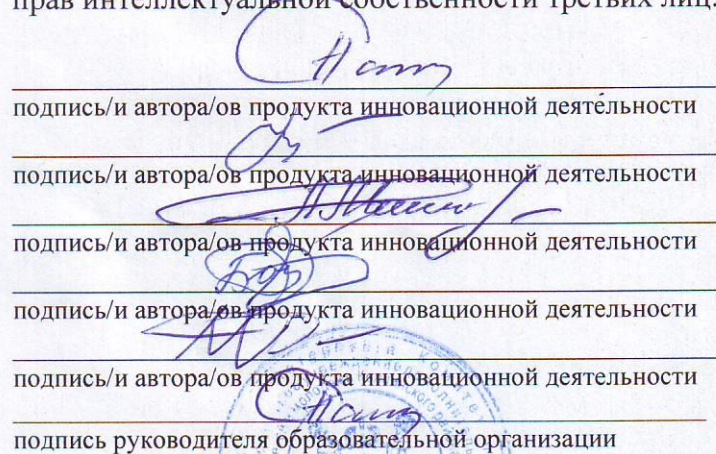 прав интеллектуальной собственности третьих лиц.
подпись/и автора/ов продукта инновационной деятельности
подпись/и автора/ов продукта инновационной деятельности
подпись/и автора/ов продукта инновационной деятельности
подпись/и автора/ов продукта инновационной деятельности
подпись/и автора/ов продукта инновационной деятельности
подпись руководителя образовательной организации